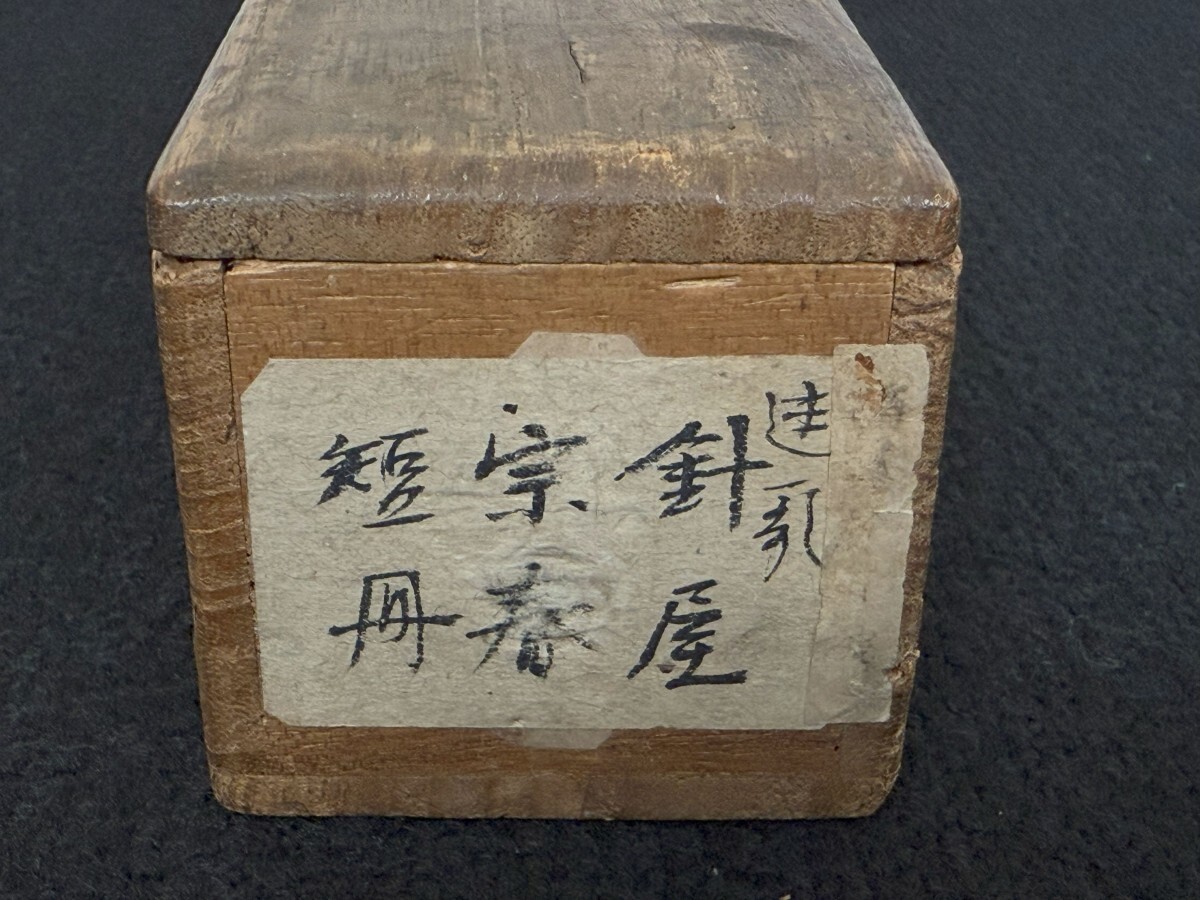 連歌
針屋
宗春
短冊